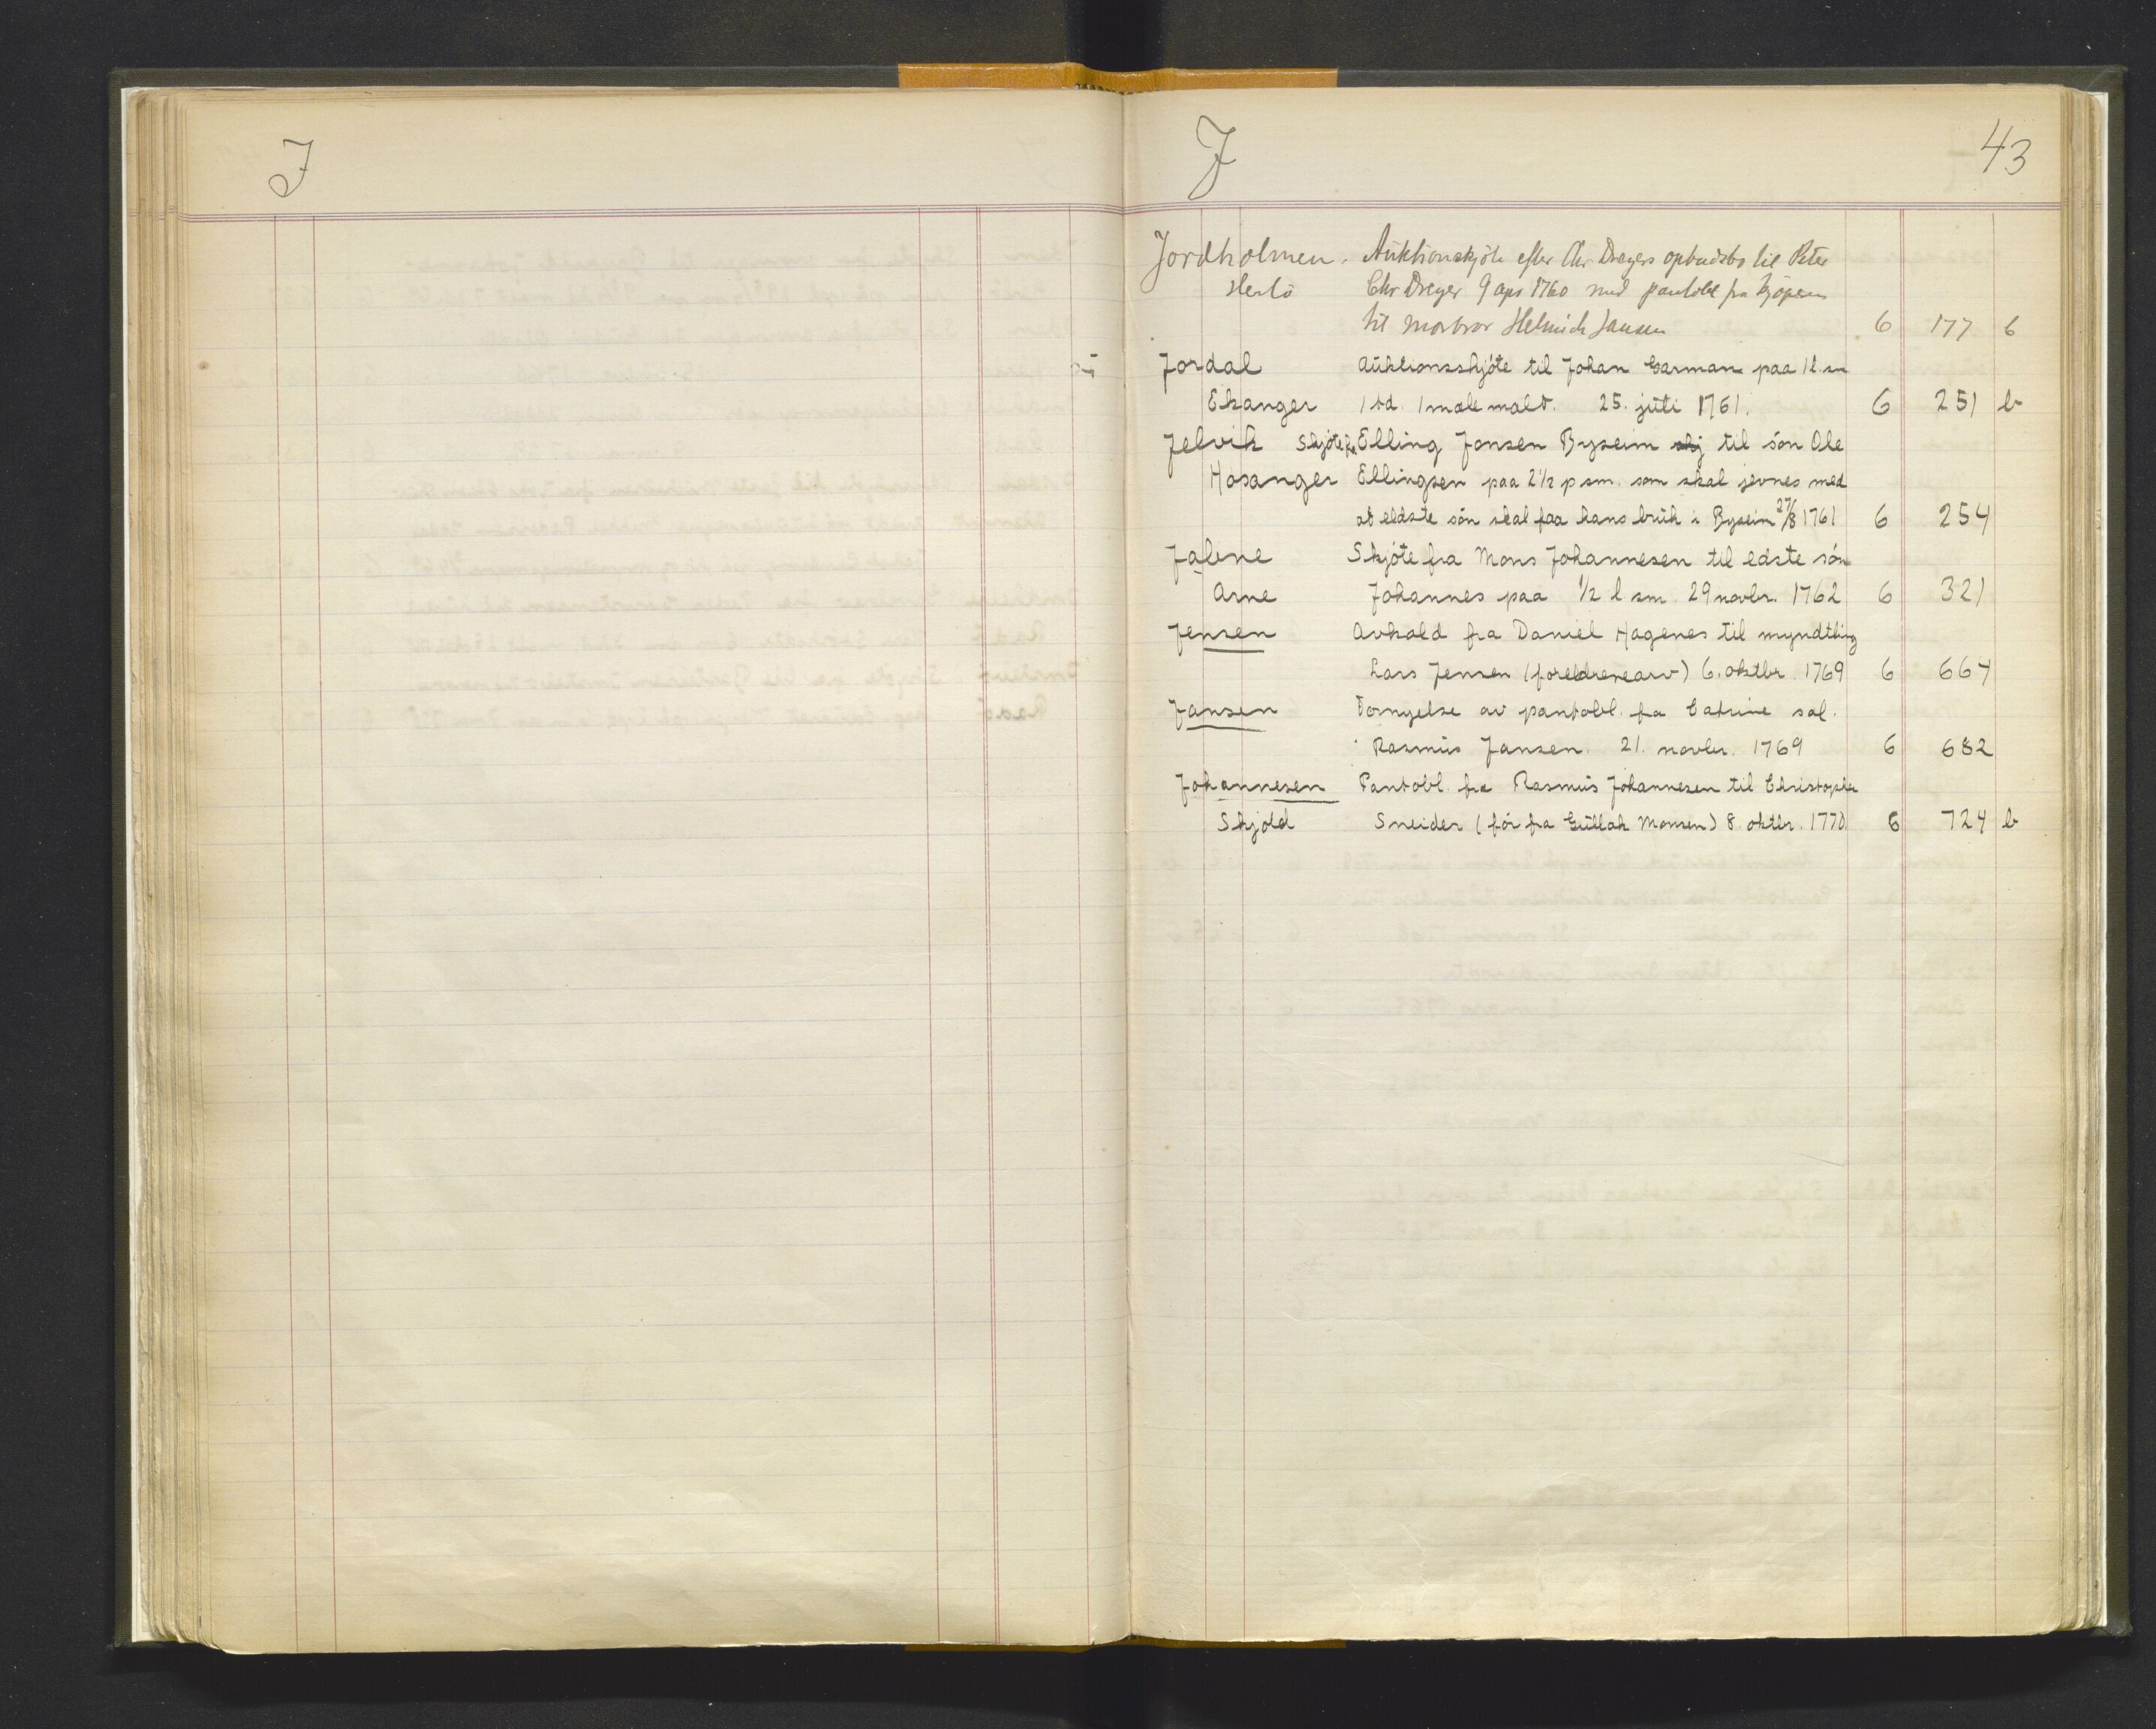 I
J
43
Jordholmen. Auktionskjöte efter Chr Dreyers opbudsbo til Peter
Herlö Chr Dreyer 9 apr 1760 med pantobl fra kjöperen
til morbror Helmich Jansen 6 177 b
Jordal Auktionsskjöte til Johan Garman paa 1 l. sm
Ekanger 1 td. 1 mæle malt. 25. juli 1761. 6 251 b
Jelvik Skjöte fra Elling Jonsen Byseim skj til sön Ole
Hosanger Ellingsen paa 2 1/2 p sm. som skal jevnes med
at eldste sön skal faa hans bruk i Byseim 27/8 1761 6 254
Jalvne Skjöte fra Mons Johannesen til eldste sön
Arne Johannes paa 1/2 l sm 29 novbr. 1762 6 321
Jensen Avkald fra Daniel Hagenes til myndtling
Lars Jensen (foreldrenearv) 6. oktbr. 1769 6 664
Jansen Fornyelse av pantobl. fra Catrine sal.
Rasmus Jansen. 21. novbr. 1769 6 682
Johannesen Pantobl. fra Rasmus Johannesen til Christopher
Skjold Sneider (för fra Gullak Monsen) 8. oktbr. 1770 6 724 b